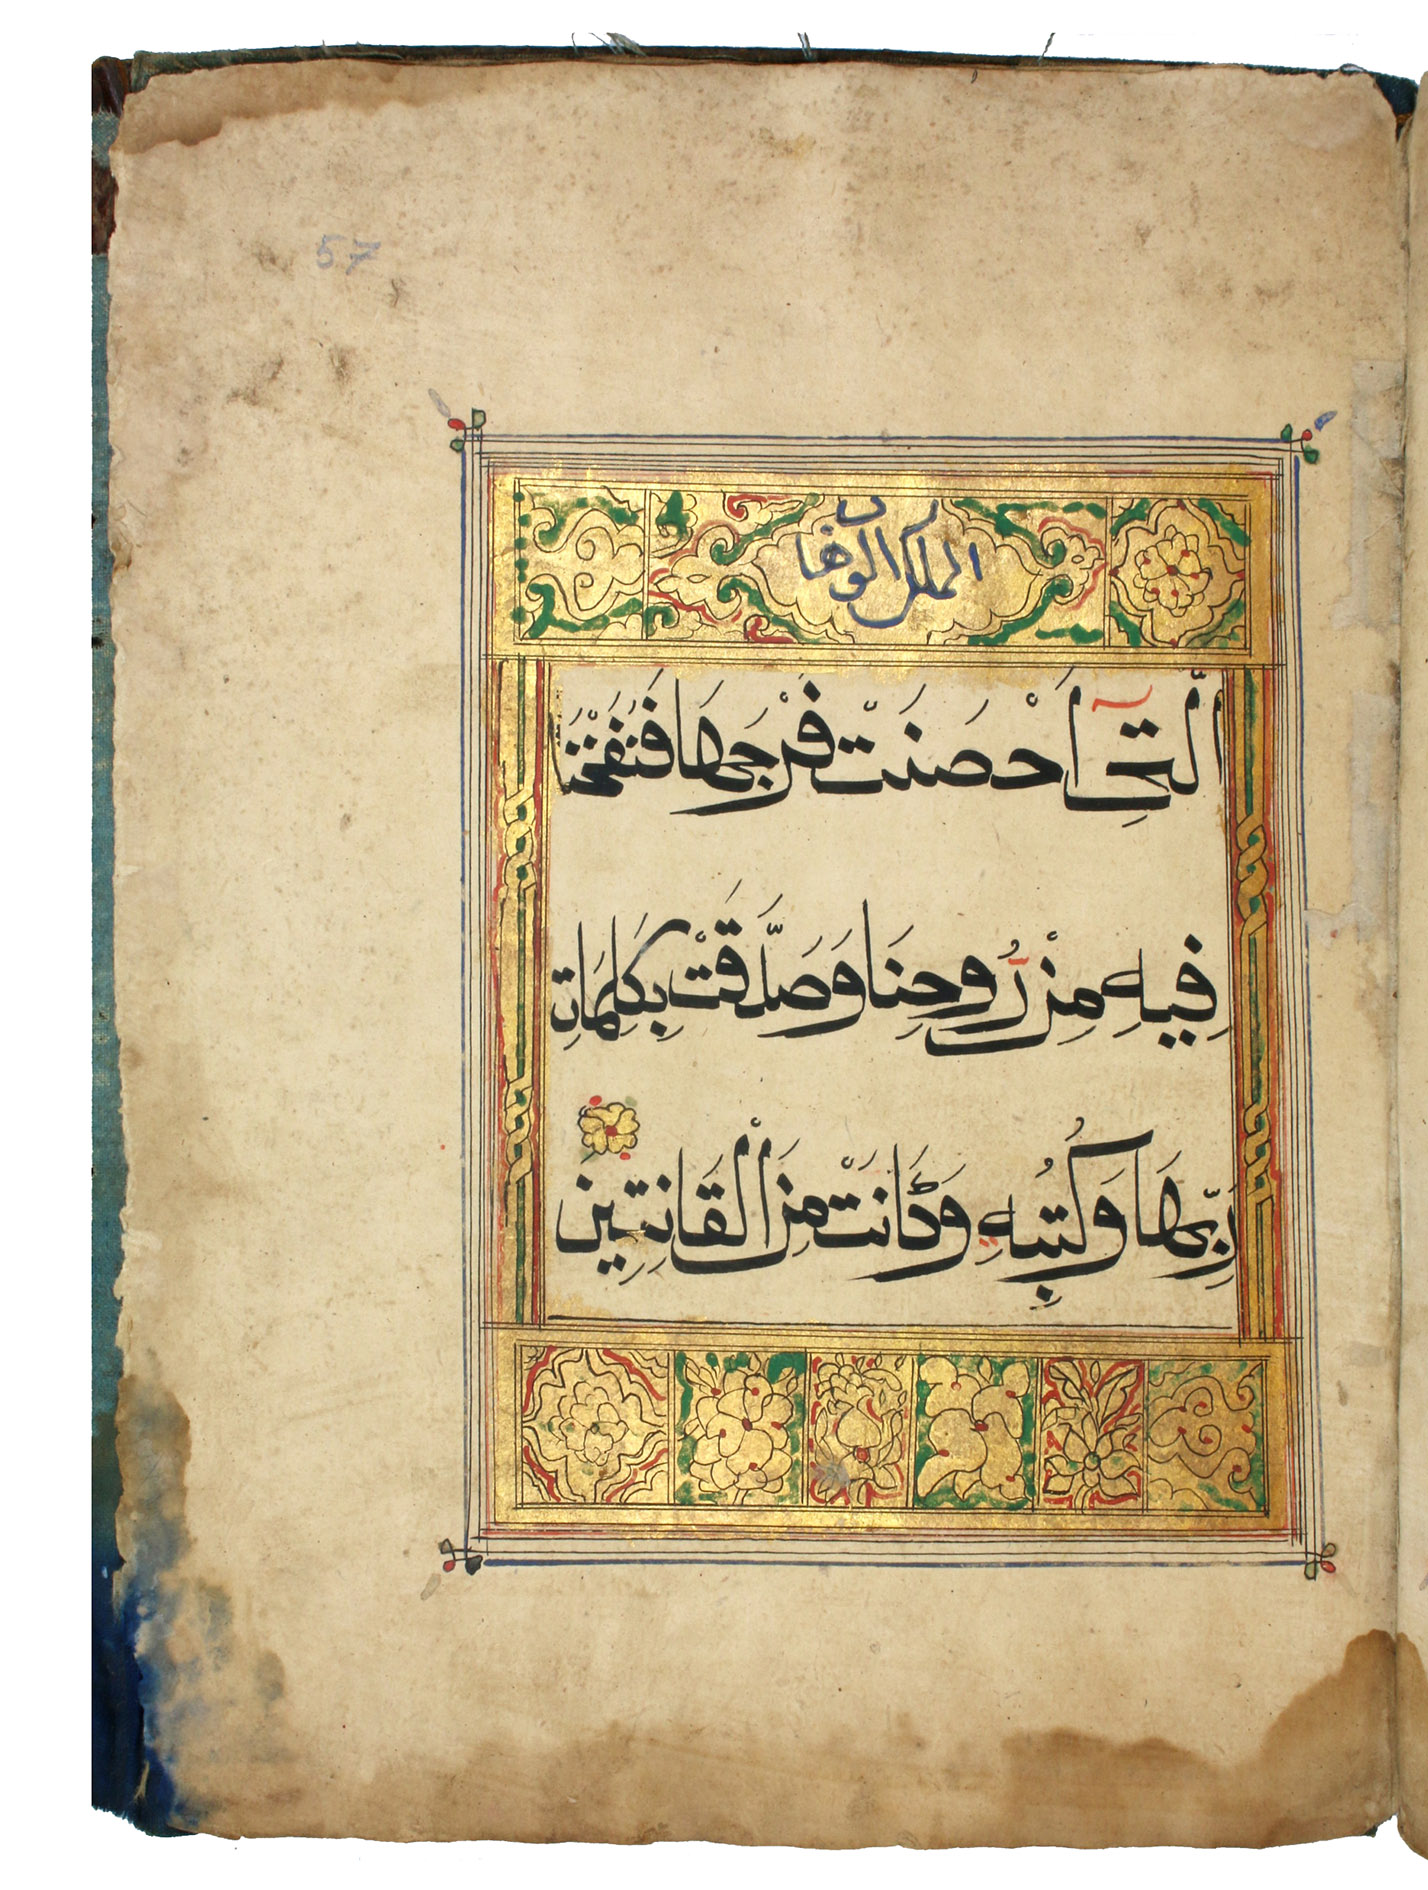 57
الملك الوهاب
الَّتِي أَحْصَنَتْ فَرْجَهَا فَنَفَخْنَا
فِيهِ مِنْ رُوحِنَا وَصَدَّقَتْ بِكَلِمَاتِ
رَبِّهَا وَكُتُبِهِ وَكَانَتْ مِنَ الْقَانِتِينَ